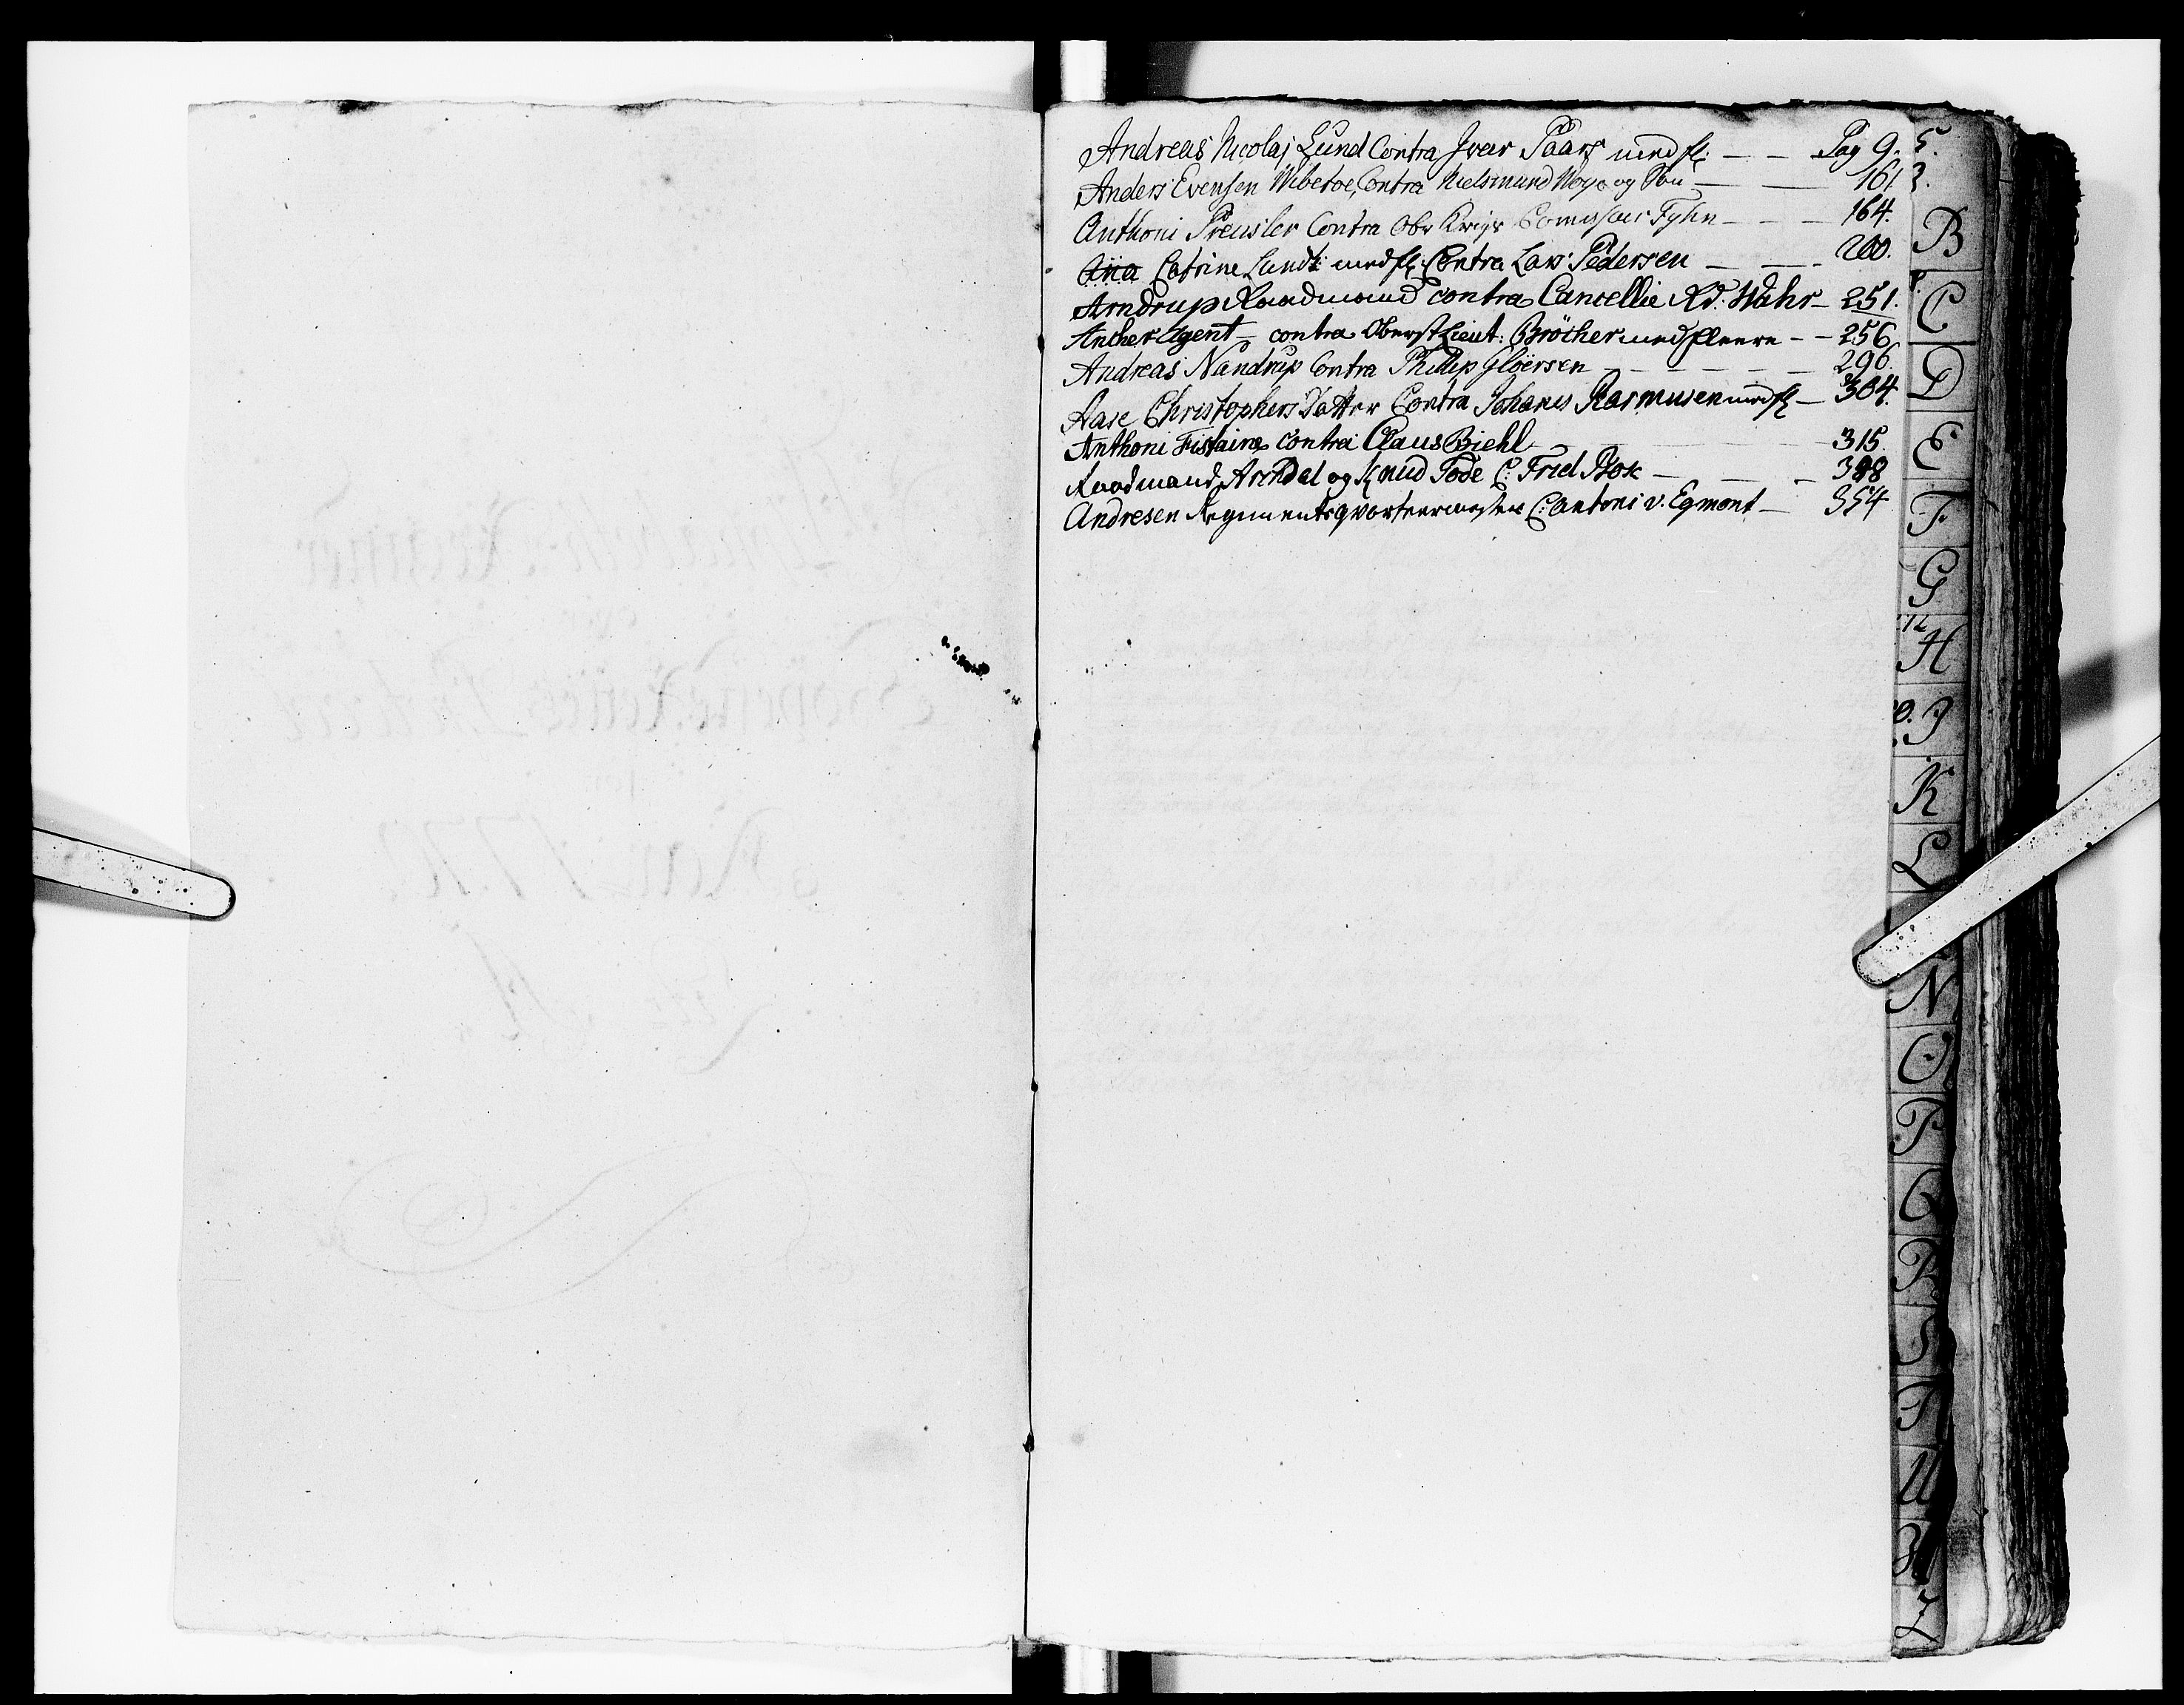 Andreas Nicolaj Lund Contra Iver Paars med fl: — — Pag 9.
Anders Evensen Wibetoe, Contra Nielsmand Moye og — — 161
Anthoni Preusler Contra Obr Krigs Comissair Fyhn — — — 164.
Aña Catrine Lundt med fl: Contra Lars Pedersen — — — 200.
Arndrup Raadmand contra Cancellie Rd: Wahr — 251.
Ancher Agent — contra Oberst Lieut: Bröcher med fleere — — 256
Andreas Nandrup Contra Phillip Gløersen — — — — 296.
Aase Christophers Datter Contra Johanes Rasmusen med fl — 304.
Anthoni Fistaine contra Claus Biehl — — — 315.
Raadmand Arndal og Knud Tode C: Frid Bok — — — 388
Andresen Regimentsqvarteermester C: Antoni v. Egmont — 354
5.
B
C
D
E
F
G
12
H
0.
I
K
L
N
O
P
Q
R
S
T
U
Z